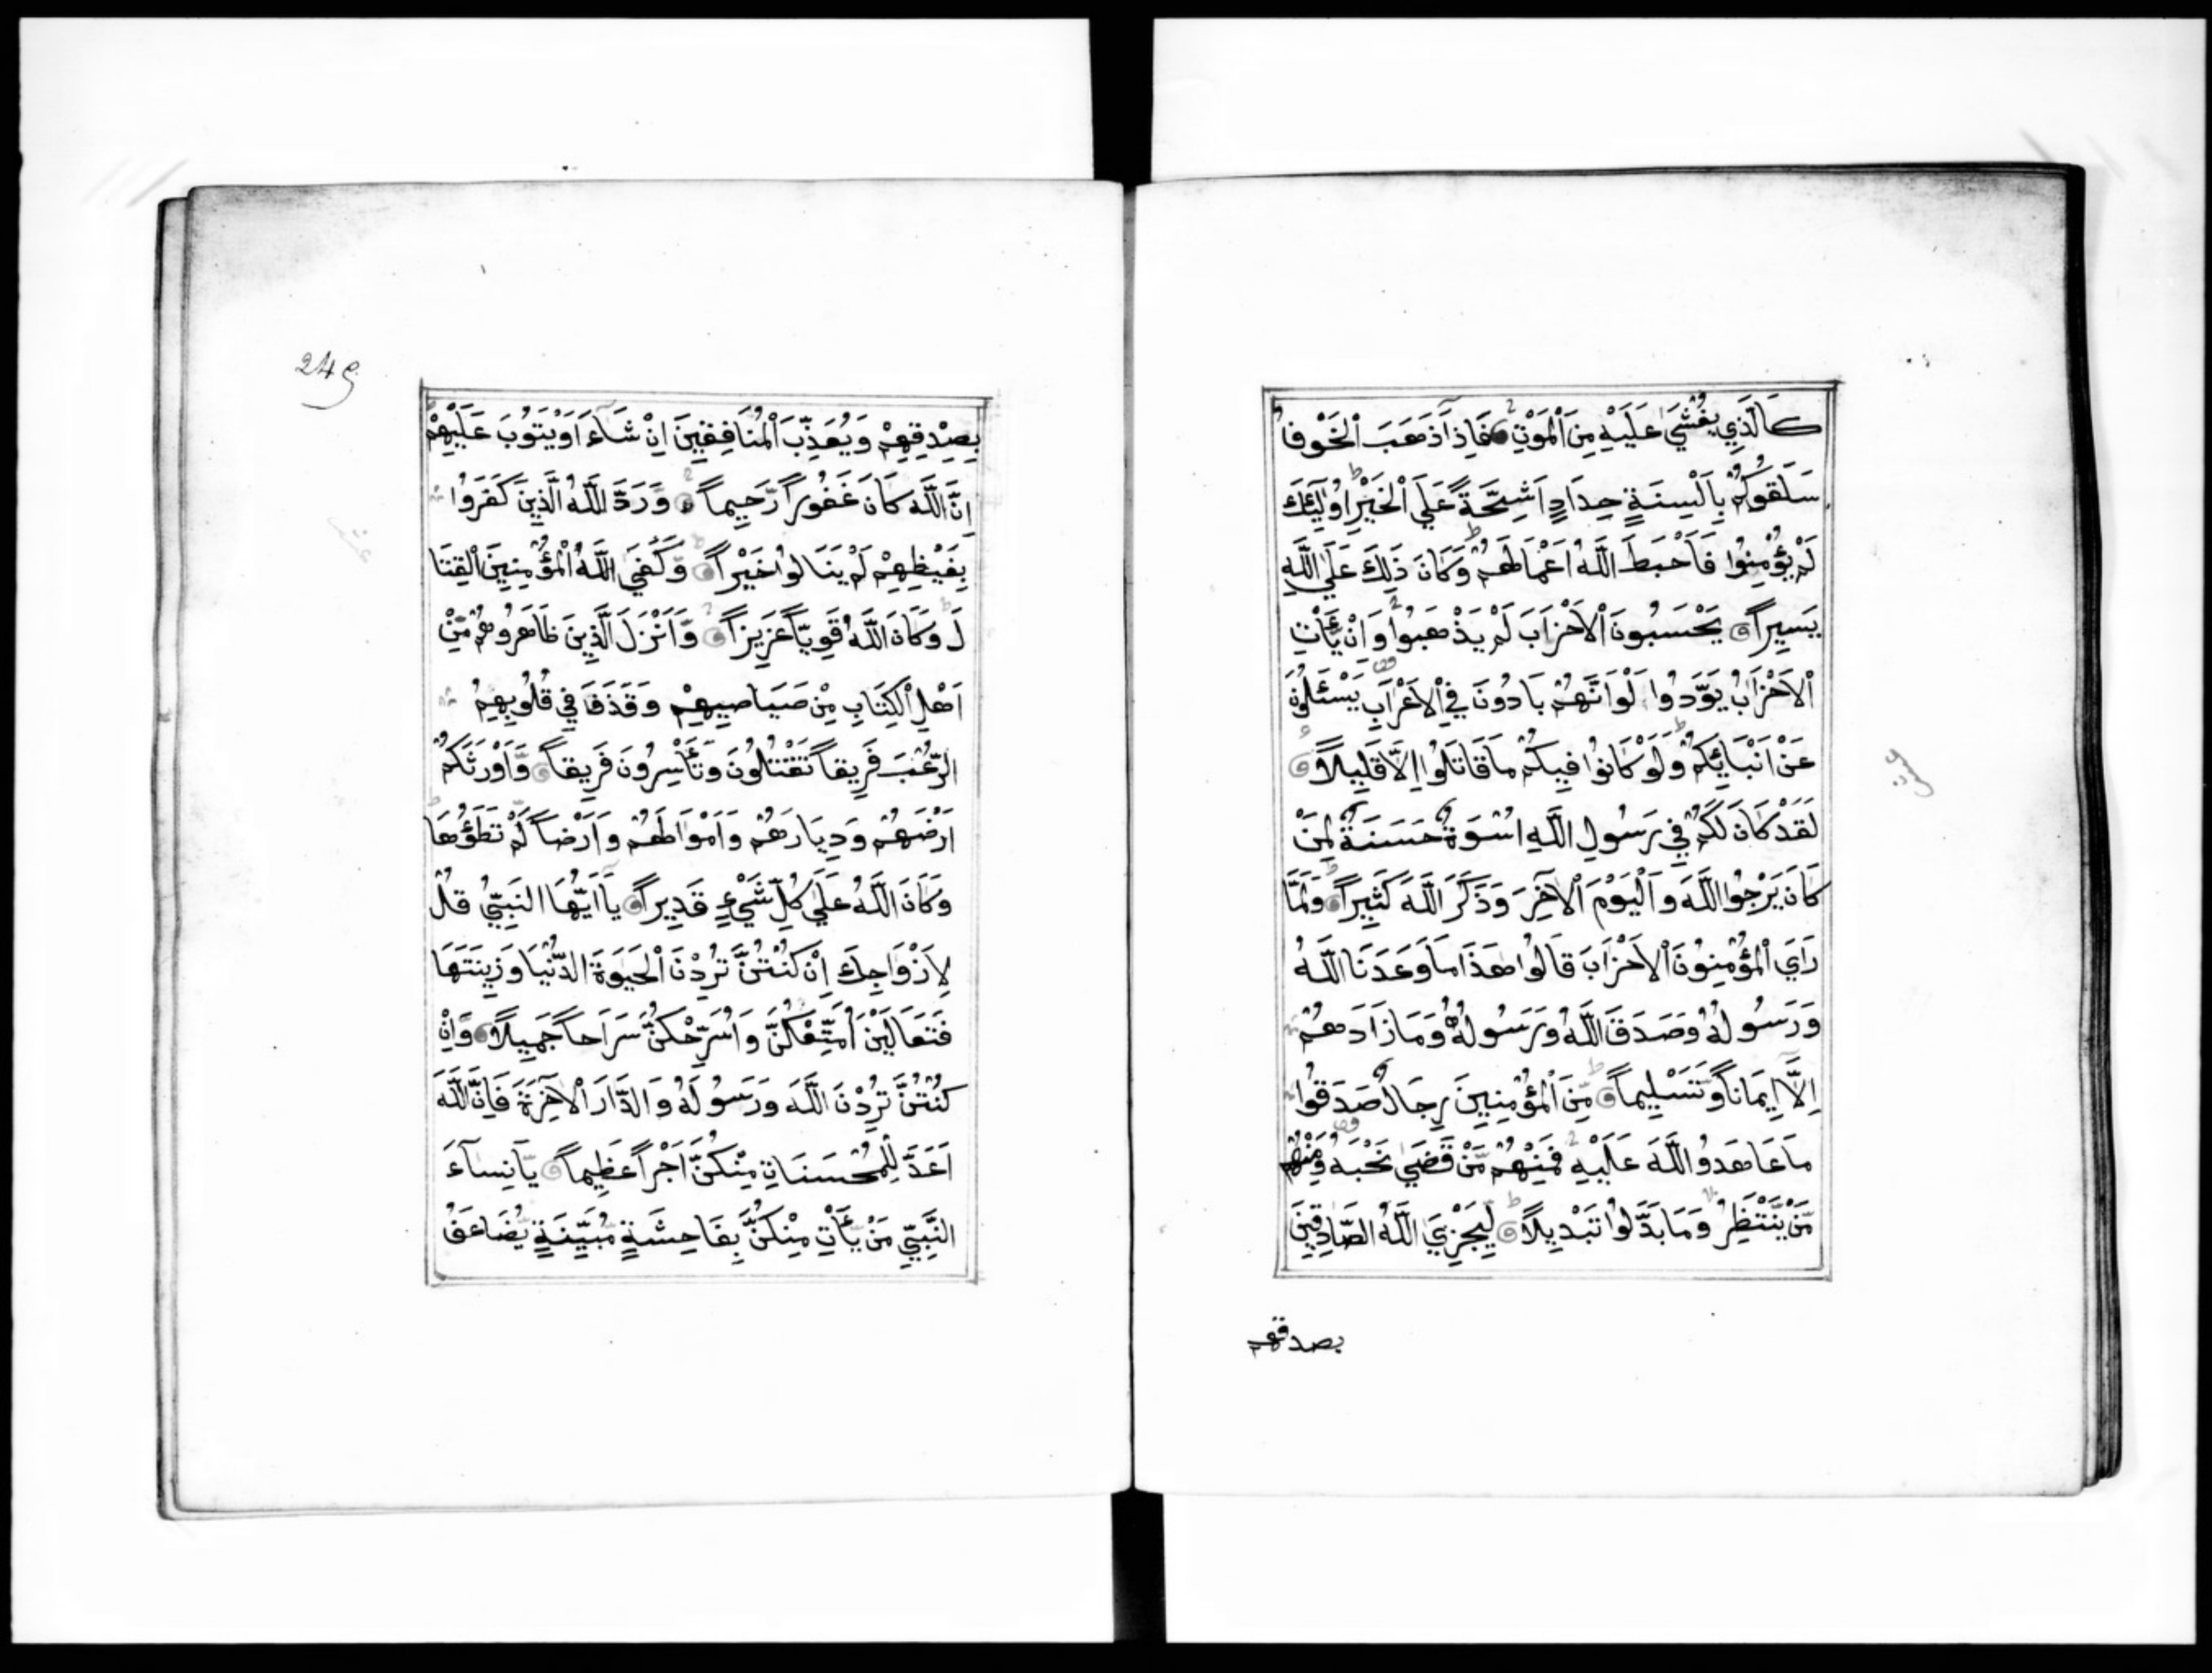 كَالَّذِي يُغْشَيٰ عَلَيْهِ مِنَ اْلمَوْتِ فَاِذَا ذَهَبَ اْلخَوْفُ
سَلَقُوكُمْ بِاَلْسِنَةٍ حِدَادٍ اَشِحَّةً عَلَي اْلخَيْرِ اُولٰٓئِكَ
لَمْ يُؤْمِنُوا فَاَحْبَطَ اللَّهُ اَعْمَالَهُمْ وَكَانَ ذَلِكَ عَلَي اللَّهِ
يَسِيراً يَحْسَبُونَ اْلاَحْزَابَ لَمْ يَذْهَبُوا وَاِنْ يَّأْتِ
اْلاَحْزَابُ يَوَدُّوا لَوْ اَنَّهُمْ بَادُونَ فِي اْلاَعْرَابِ يَسْئَلُونَ
عَنْ اَنْبَائِكُمْ وَلَوْ كَانُوا فِيكُمْ مَا قَاتَلُوا اِلَّا قَلِيلاً
لَقَدْ كَانَ لَكُمْ فِي رَسُولِ اللَّهِ اُسْوَةٌ حَسَنَةٌ لِمَنْ
كَانَ يَرْجُوا اللَّهَ وَاْليَوْمَ اْلآخِرَ وَذَكَرَ اللَّهَ كَثِيراً وَلَمَّا
رَاَي اْلمُؤْمِنُونَ اْلاَحْزَابَ قَالُوا هَذَا مَا وَعَدَنَا اللَّهُ
وَرَسُولُهُ وَصَدَقَ اللَّهُ وَرَسُولُهُ وَمَا زَادَهُمْ
اِلَّا اِيمَاناً وَّتَسْلِيماً مِّنَ اْلمُؤْمِنِينَ رِجَالٌ صَدَقُوا
مَا عَاهَدُوا اللَّهَ عَلَيْهِ فَمِنْهُمْ مَّنْ قَضَيٰ نَحْبَهُ وَمِنْهُمْ
مَّنْ يَّنْتَظِرُ وَمَا بَدَّلُوا تَبْدِيلاً لِّيَجْزِيَ اللَّهُ الصَّادِقِينَ
بصدقهم
249
بِصِدْقِهِمْ وَيُعَذِّبَ اْلمُنَافِقِينَ اِنْ شَاءَ اَوْ يَتُوبَ عَلَيْهِمْ
اِنَّ اللَّهَ كَانَ غَفُوراً رَّحِيماً وَرَدَّ اللَّهُ الَّذِينَ كَفَرُوا
بِغَيْظِهِمْ لَمْ يَنَالُوا خَيْراً وَّكَفَي اللَّهُ اْلمُؤْمِنِينَ اْلقِتَا
لَ وَكَانَ اللَّهُ قَوِيّاً عَزِيزاً وَّاَنْزَلَ الَّذِينَ ظَاهَرُوهُمْ مِّنْ
اَهْلِ اْلكِتَابِ مِنْ صَيَاصِيهِمْ وَقَذَفَ فِي قُلُوبِهِمُ
الرُّعْبَ فَرِيقاً تَقْتُلُونَ وَتَأْسِرُونَ فَرِيقاً وَّاَوْرَثَكُمْ
اَرْضَهُمْ وَدِيَارَهُمْ وَاَمْوَالَهُمْ وَاَرْضاً لَّمْ تَطَؤُهَا
وَكَانَ اللَّهُ عَلَي كُلِّ شَيْءٍ قَدِيراً يَا اَيُّهَا النَّبِيُّ قُلْ
لِاَزْوَاجِكَ اِنْ كُنْتُنَّ تُرِدْنَ اْلحَيَوةَ الدُّنْيَا وَزِينَتَهَا
فَتَعَالَيْنَ اُمَتِّعْكُنَّ وَاُسَرِّحْكُنَّ سَرَاحاً جَمِيلاً وَّاِنْ
كُنْتُنَّ تُرِدْنَ اللَّهَ وَرَسُولَهُ وَالدَّارَ اْلآخِرَةَ فَاِنَّ اللَّهَ
اَعَدَّ لِلْمُحْسِنَاتِ مِنْكُنَّ اَجْراً عَظِيماً يَا نِسَآءَ
النَّبِيِّ مَنْ يَّأْتِ مِنْكُنَّ بِفَاحِشَةٍ مُّبَيِّنَةٍ يُّضَاعَفْ